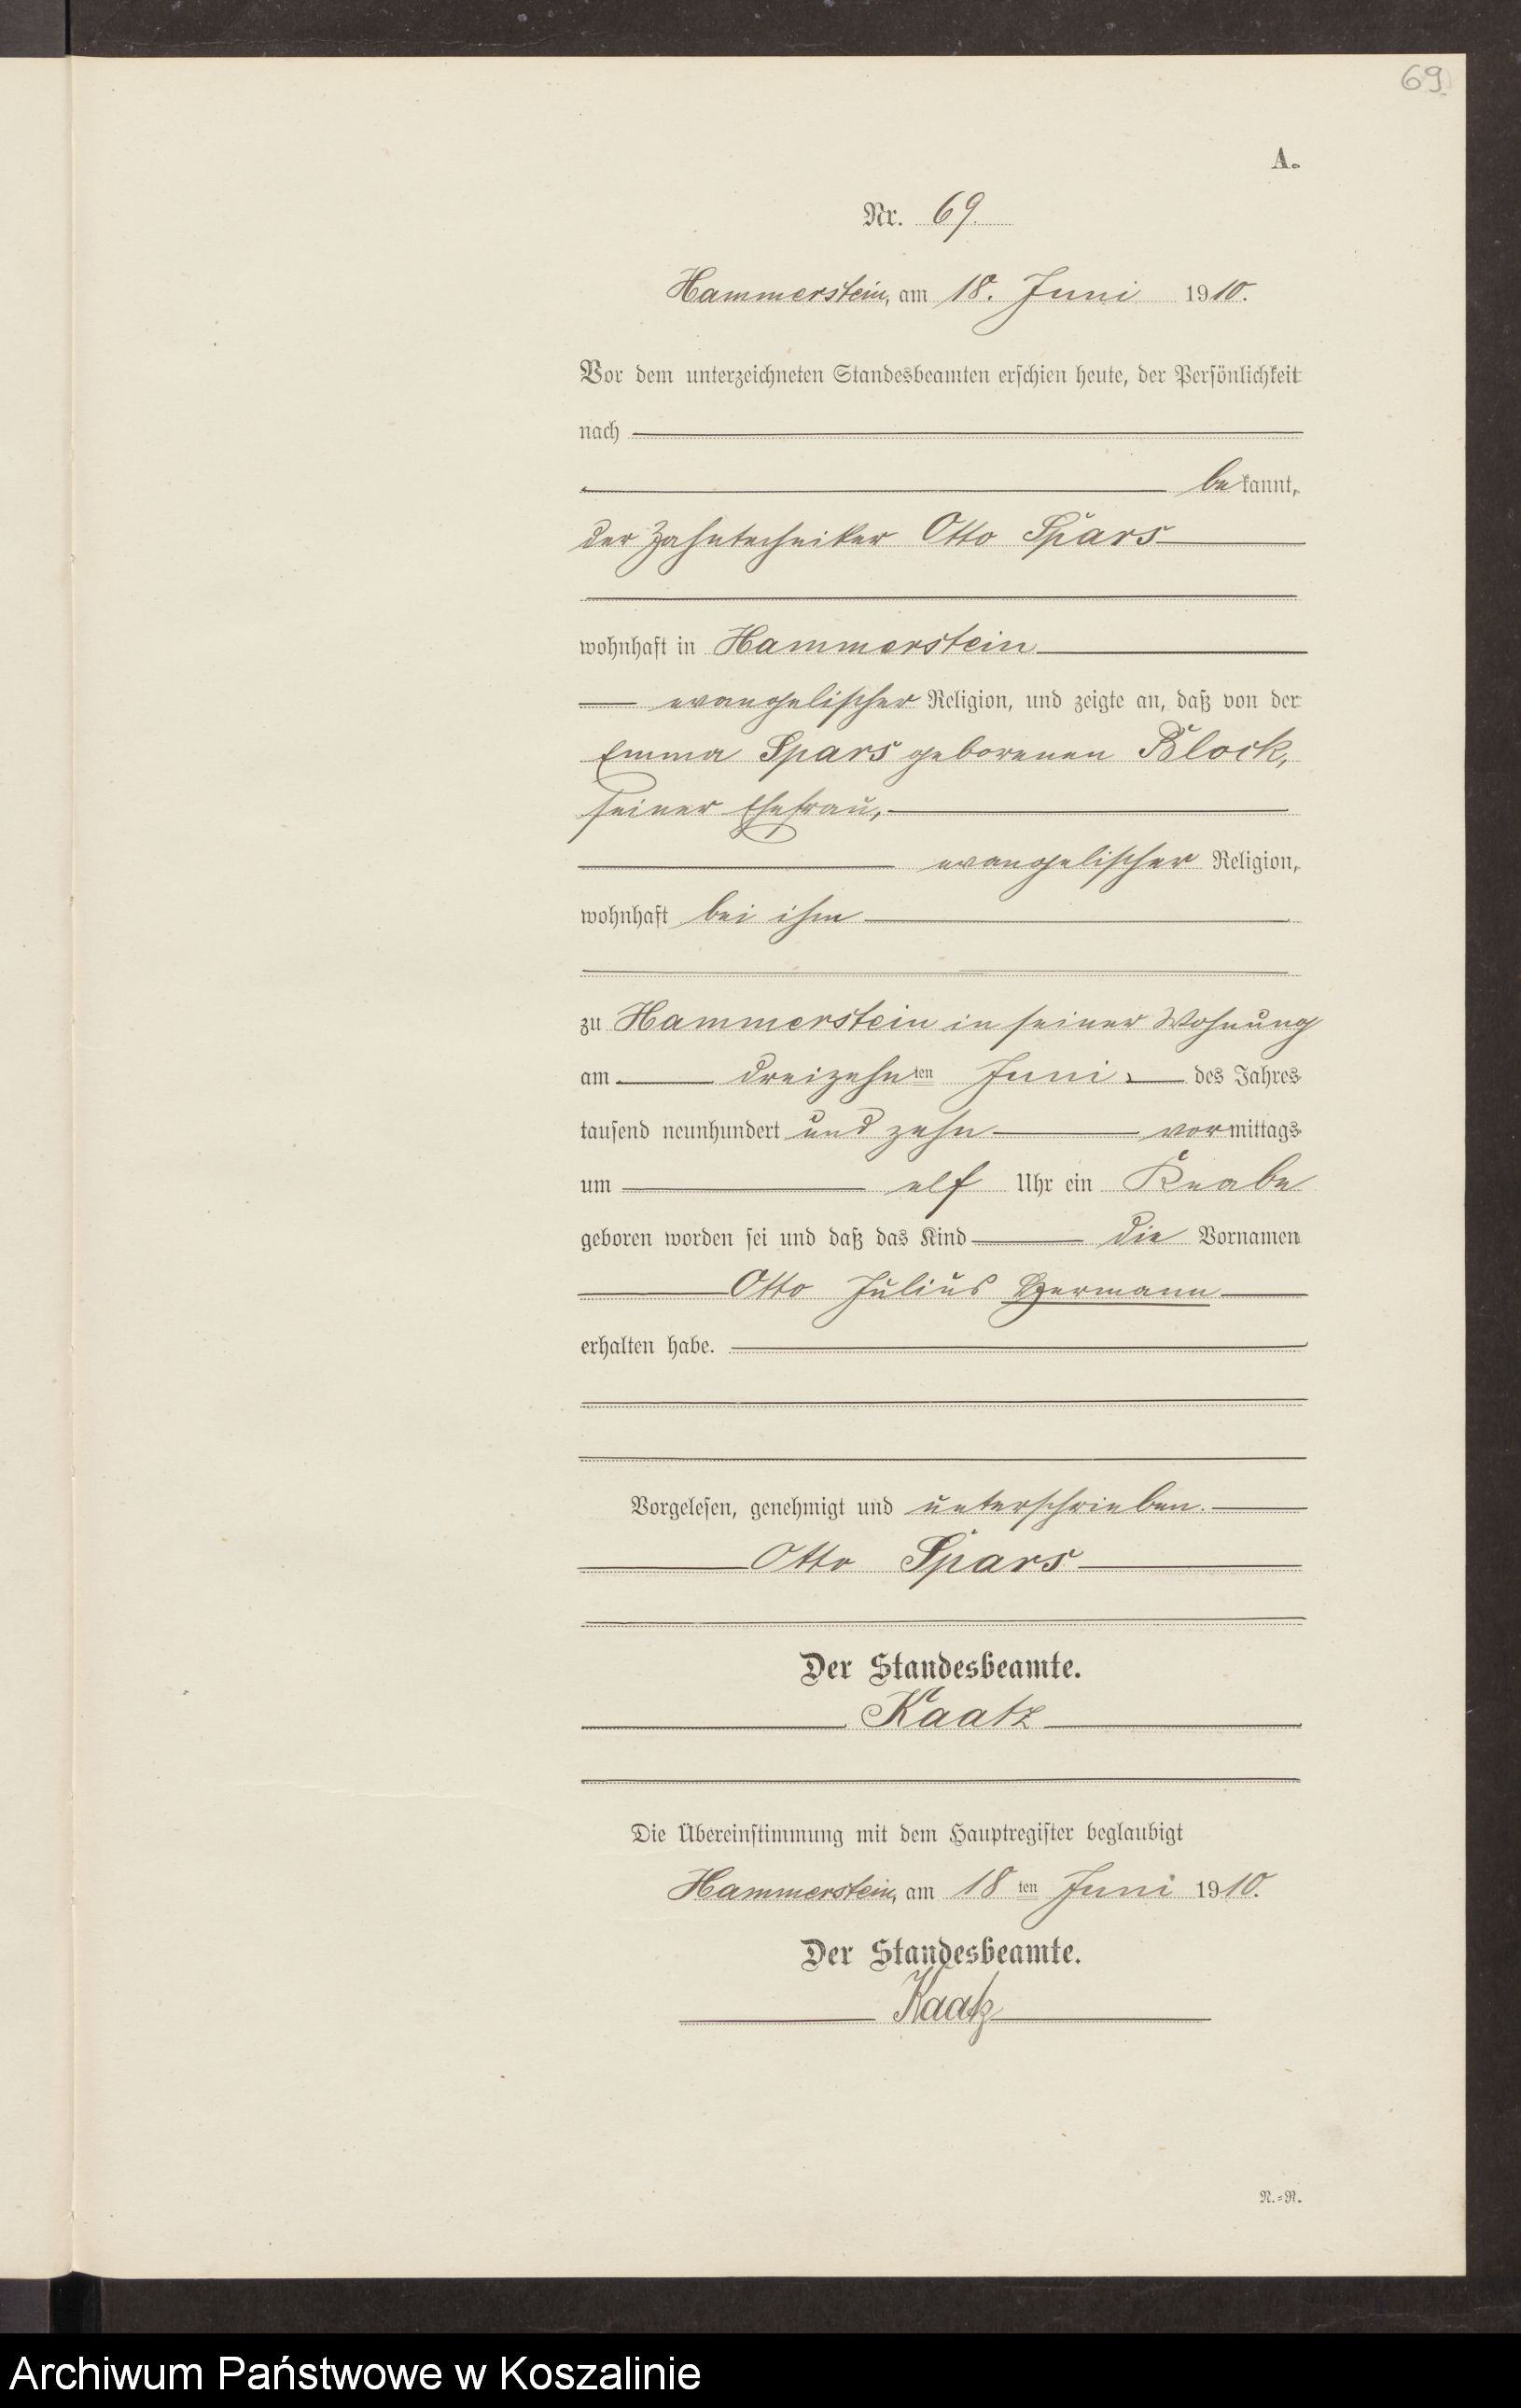 69.
A.
Nr. 69.
Hammerstein, am 18. Juni 1910.
Vor dem unterzeichneten Standesbeamten erschien heute, der Persönlichkeit
nach
bekannt,
der Zahntechniker Otto Spars
wohnhaft in Hammerstein
evangelischer Religion, und zeigte an, daß von der
Emma Spars geborenen Block,
seiner Ehefrau,
evangelischer Religion,
wohnhaft bei ihm
zu Hammerstein in seiner Wohnung
am dreizehnten Juni des Jahres
tausend neunhundert und zehn vormittags
um elf Uhr ein Knabe
geboren worden sei und daß das Kind die Vornamen
Otto Julius Hermann
erhalten habe.
Vorgelesen, genehmigt und unterschrieben.
Otto Spars
Der Standesbeamte.
Kaatz
Die Übereinstimmung mit dem Hauptregister beglaubigt
Hammerstein, am 18ten Juni 1910.
Der Standesbeamte.
Kaatz
N.=R.
Archiwum Państwowe w Koszalinie